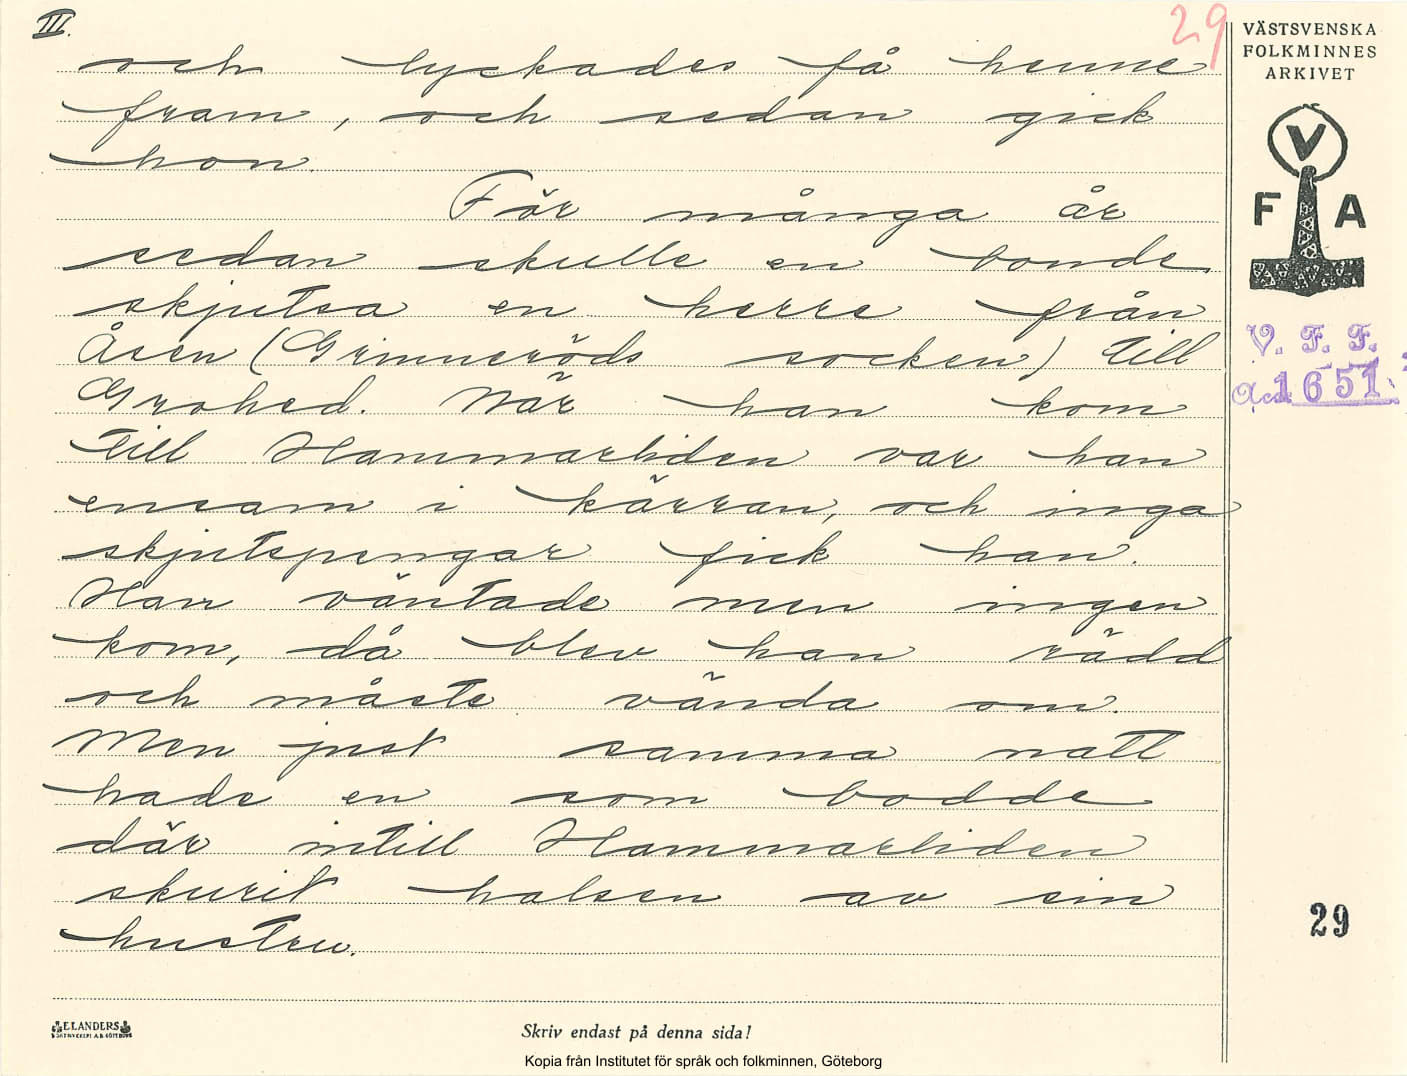 III.
29
och lyckades få henne
fram, och sedan gick
hon.
För många år
sedan skulle en bonde
skjutsa en herre från
Åsen (Grinneröds socken) till
Grohed. När han kom
till Hammarliden var han
ensam i kärran, och inga
skjutspengar fick han.
Han väntade men ingen
kom, då blev han rädd
och måste vända om.
Men just samma natt
hade en som bodde
där intill Hammarliden
skurit halsen av sin
hustru.
VÄSTSVENSKA
FOLKMINNES
ARKIVET
V
F A
V. F. F.
Acc. 1651
29
ELANDERS
Skriv endast på denna sida!
Kopia från Institutet för språk och folkminnen, Göteborg